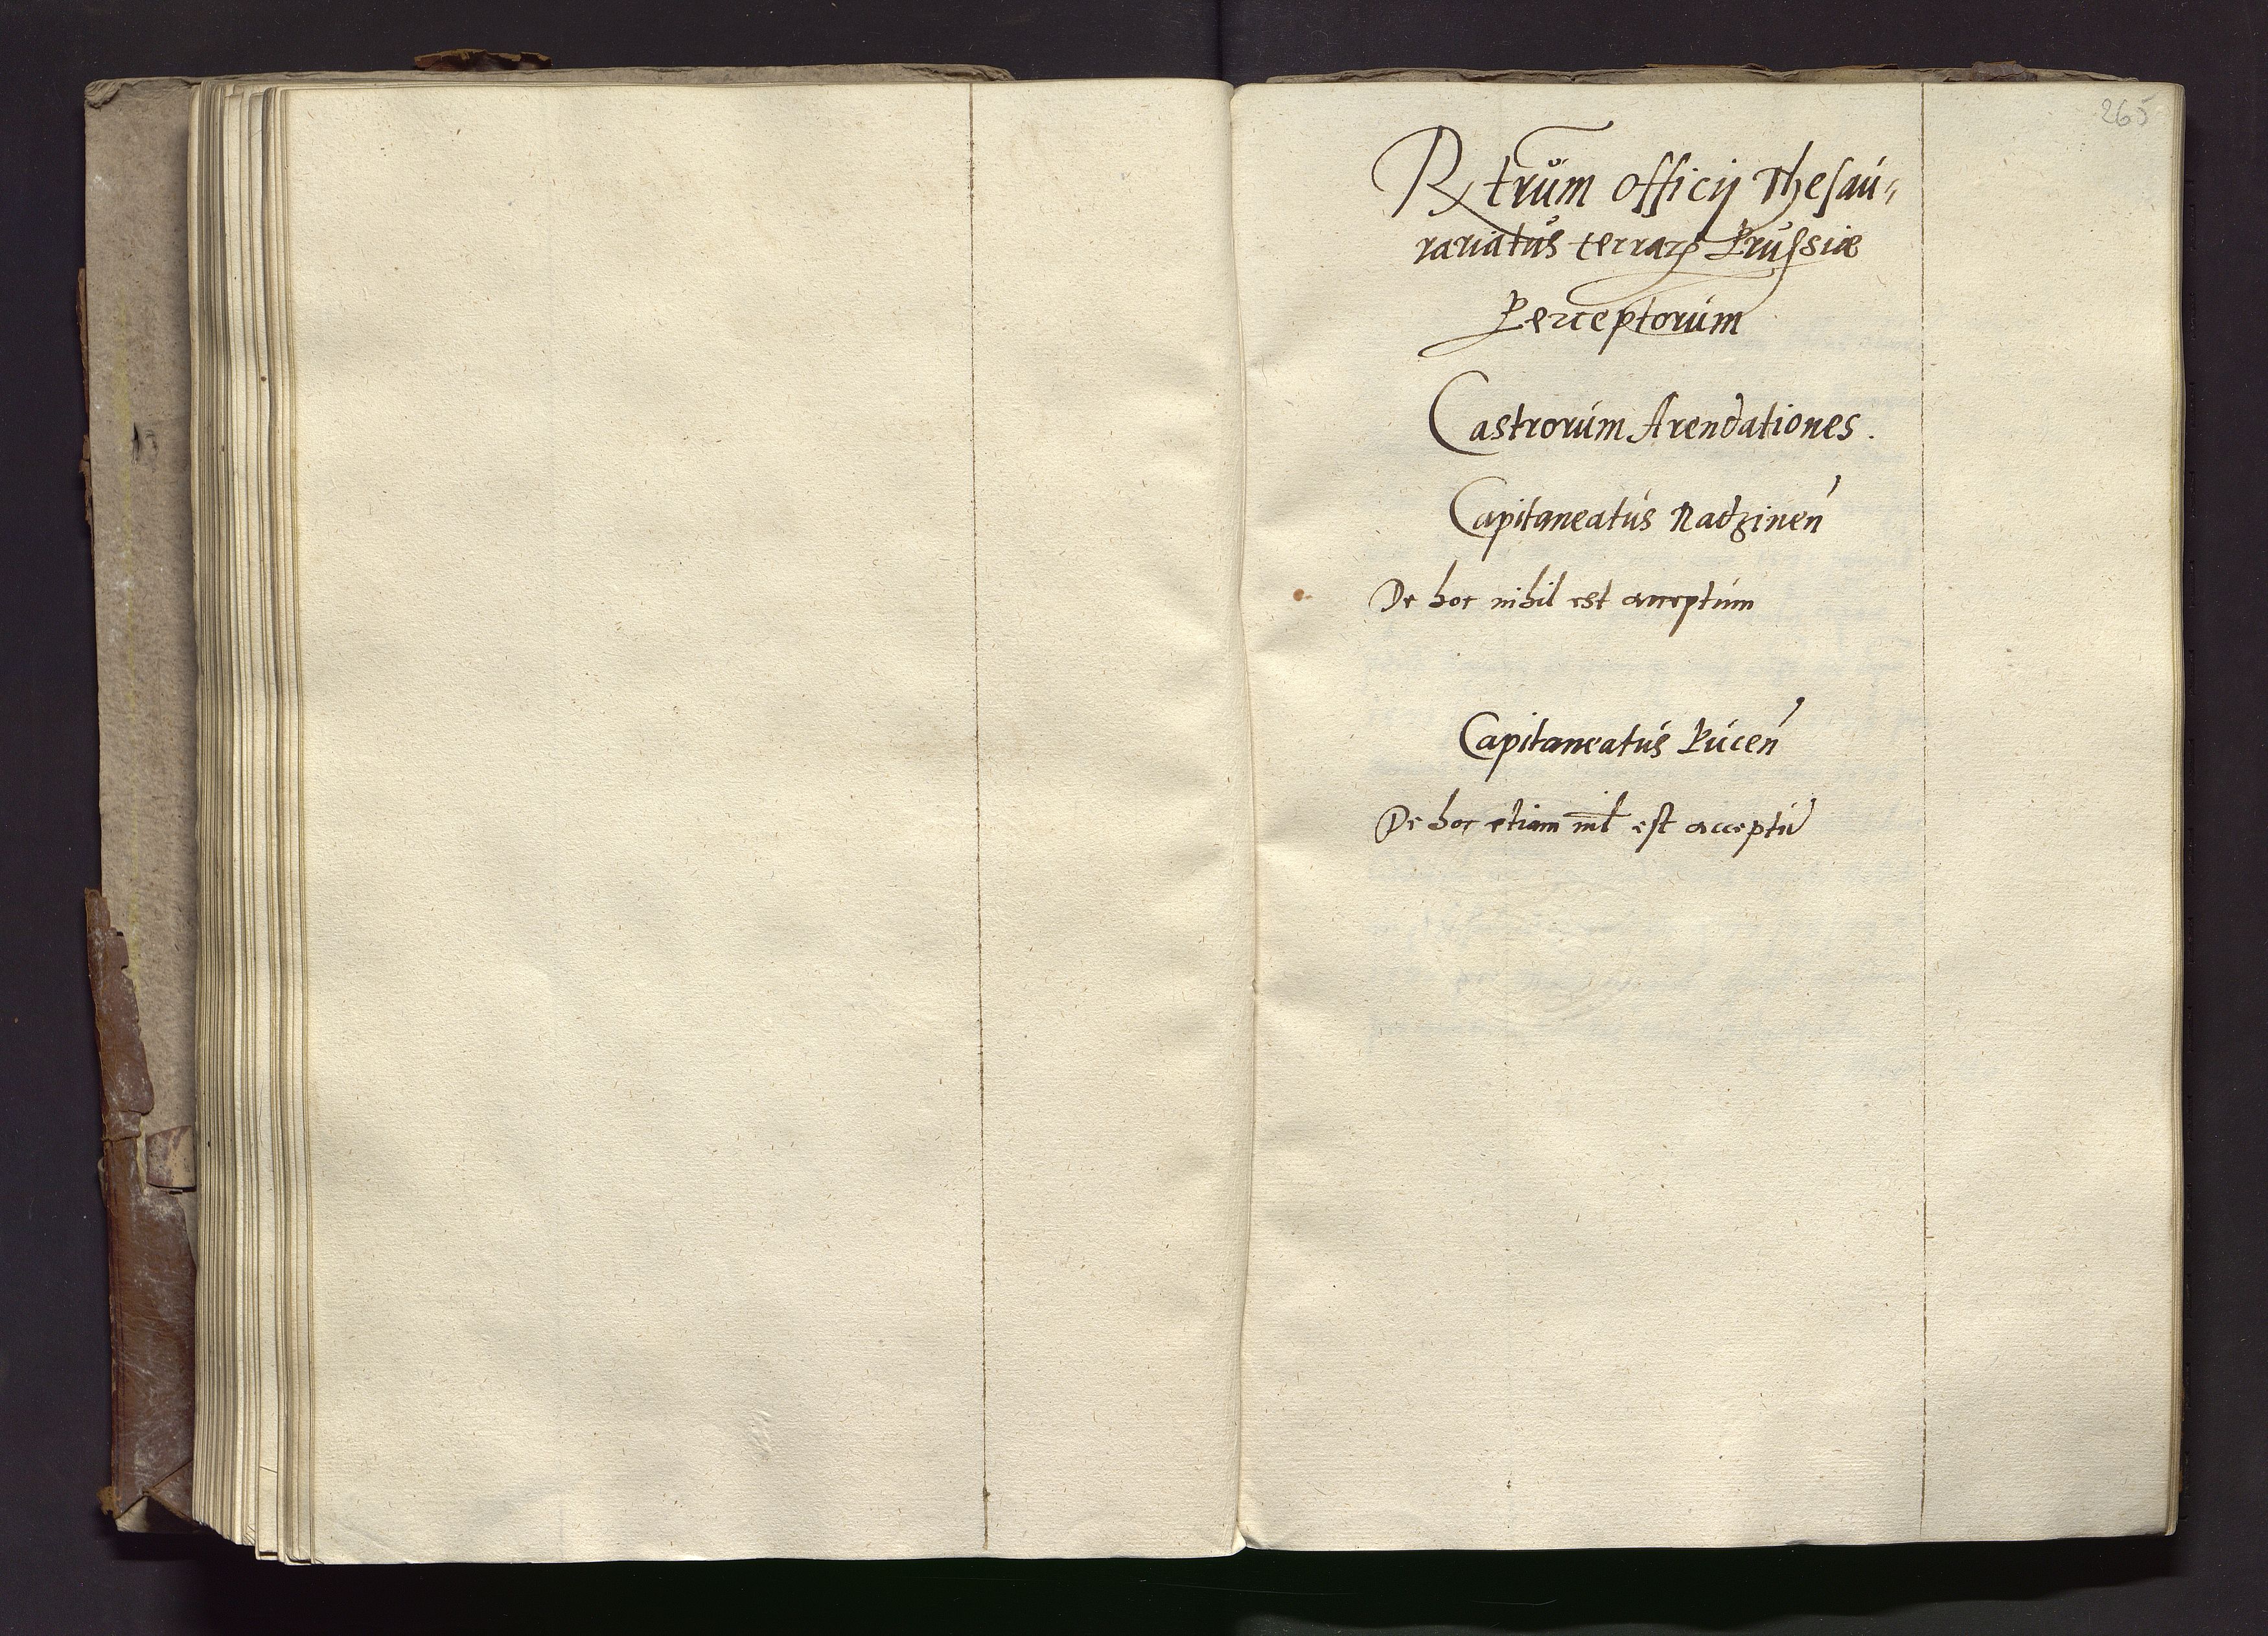 265
Rtrum officij Thesau-
rariatus terrarꝝ Prussiæ
Perceptorum
Castrorum Arendationes.
Capitaneatus Radzinen
De hoc nihil est acceptum
Capitaneatus Pucen
De hoc etiam nil est acceptu